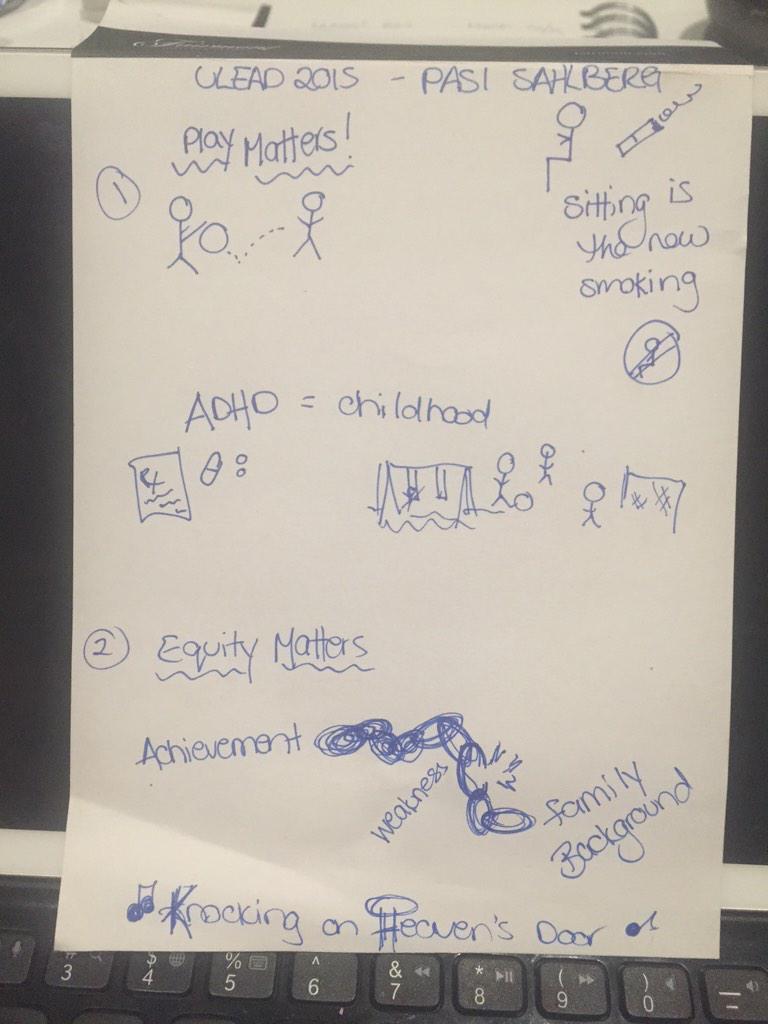 ULEAD 2015 - PASI SAHLBERG
Play Matters!
1
Sitting is
the new
smoking
ADHD = childhood
Rx
2 Equity Matters
Achievement
weakness
family
Background
Knocking on Heaven's Door
# $ % ^ & * ( ) _
3 4 5 6 7 8 9 0 -